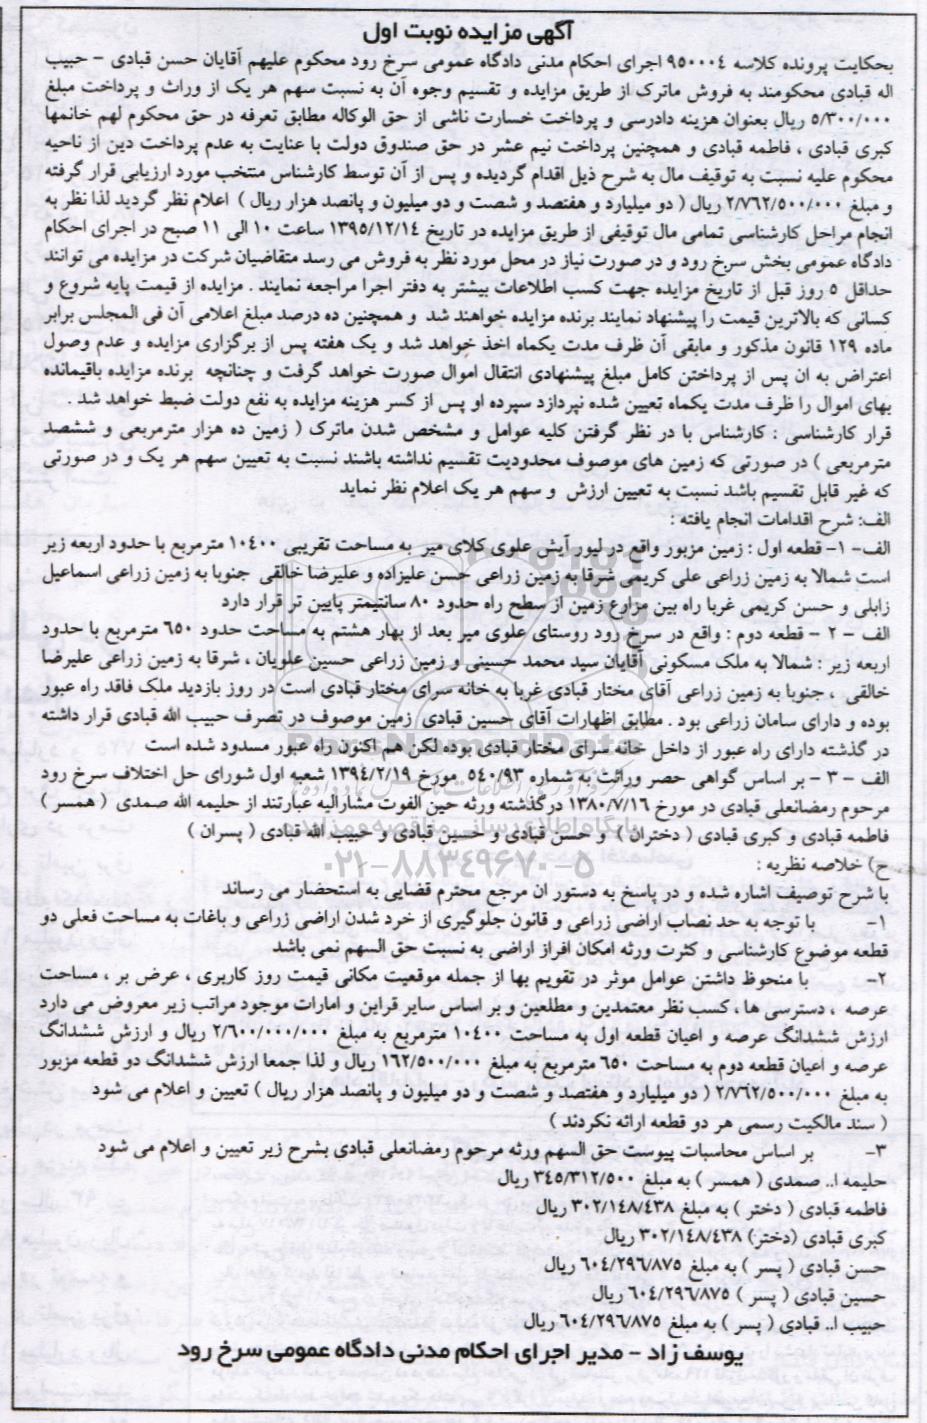 آگهی مزایده نوبت اول
بحکایت پرونده کلاسه ۹۵۰۰۰۴ اجرای احکام مدنی دادگاه عمومی سرخ رود محکوم علیهم آقایان حسن قبادی - حبیب
اله قبادی محکومند به فروش ماترک از طریق مزایده و تقسیم وجوه آن به نسبت سهم هر یک از وراث و پرداخت مبلغ
۵/۳۰۰/۰۰۰ ریال بعنوان هزینه دادرسی و پرداخت خسارت ناشی از حق الوکاله مطابق تعرفه در حق محکوم لهم خانمها
کبری قبادی ، فاطمه قبادی و همچنین پرداخت نیم عشر در حق صندوق دولت با عنایت به عدم پرداخت دین از ناحیه
محکوم علیه نسبت به توقیف مال به شرح ذیل اقدام گردیده و پس از آن توسط کارشناس منتخب مورد ارزیابی قرار گرفته
و مبلغ ۲/۷۶۲/۵۰۰/۰۰۰ ریال ( دو میلیارد و هفتصد و شصت و دو میلیون و پانصد هزار ریال ) اعلام نظر گردید لذا نظر به
انجام مراحل کارشناسی تمامی مال توقیفی از طریق مزایده در تاریخ ۱۳۹۵/۱۲/۱۴ ساعت ۱۰ الی ۱۱ صبح در اجرای احکام
دادگاه عمومی بخش سرخ رود و در صورت نیاز در محل مورد نظر به فروش می رسد متقاضیان شرکت در مزایده می توانند
حداقل ۵ روز قبل از تاریخ مزایده جهت کسب اطلاعات بیشتر به دفتر اجرا مراجعه نمایند . مزایده از قیمت پایه شروع و
کسانی که بالاترین قیمت را پیشنهاد نمایند برنده مزایده خواهند شد و همچنین ده درصد مبلغ اعلامی آن فی المجلس برابر
ماده ۱۲۹ قانون مذکور و مابقی آن ظرف مدت یکماه اخذ خواهد شد و یک هفته پس از برگزاری مزایده و عدم وصول
اعتراض به ان پس از پرداختن کامل مبلغ پیشنهادی انتقال اموال صورت خواهد گرفت و چنانچه برنده مزایده باقیمانده
بهای اموال را ظرف مدت یکماه تعیین شده نپردازد سپرده او پس از کسر هزینه مزایده به نفع دولت ضبط خواهد شد .
قرار کارشناسی : کارشناس با در نظر گرفتن کلیه عوامل و مشخص شدن ماترک ( زمین ده هزار مترمربعی و ششصد
مترمربعی ) در صورتی که زمین های موصوف محدودیت تقسیم نداشته باشند نسبت به تعیین سهم هر یک و در صورتی
که غیر قابل تقسیم باشد نسبت به تعیین ارزش و سهم هر یک اعلام نظر نماید
الف: شرح اقدامات انجام یافته :
الف- ۱- قطعه اول : زمین مزبور واقع در لیور آیش علوی کلای میر به مساحت تقریبی ۱۰۴۰۰ مترمربع با حدود اربعه زیر
است شمالا به زمین زراعی علی کریمی شرقا به زمین زراعی حسن علیزاده و علیرضا خالقی جنوبا به زمین زراعی اسماعیل
زابلی و حسن کریمی غربا راه بین مزارع زمین از سطح راه حدود ۸۰ سانتیمتر پایین تر قرار دارد
الف - ۲ - قطعه دوم : واقع در سرخ رود روستای علوی میر بعد از بهار هشتم به مساحت حدود ۶۵۰ مترمربع با حدود
اربعه زیر : شمالا به ملک مسکونی آقایان سید محمد حسینی و زمین زراعی حسین علویان ، شرقا به زمین زراعی علیرضا
خالقی ، جنوبا به زمین زراعی آقای مختار قبادی غربا به خانه سرای مختار قبادی است در روز بازدید ملک فاقد راه عبور
بوده و دارای سامان زراعی بود . مطابق اظهارات آقای حسین قبادی زمین موصوف در تصرف حبیب الله قبادی قرار داشته
در گذشته دارای راه عبور از داخل خانه سرای مختار قبادی بوده لکن هم اکنون راه عبور مسدود شده است
الف - ۳ - بر اساس گواهی حصر وراثت به شماره ۵۴۰/۹۳ مورخ ۱۳۹۴/۲/۱۹ شعبه اول شورای حل اختلاف سرخ رود
مرحوم رمضانعلی قبادی در مورخ ۱۳۸۰/۷/۱۶ درگذشته ورثه حین الفوت مشارالیه عبارتند از حلیمه الله صمدی ( همسر )
فاطمه قبادی و کبری قبادی ( دختران ) و حسن قبادی و حسین قبادی و حبیب الله قبادی ( پسران )
ح) خلاصه نظریه :
با شرح توصیف اشاره شده و در پاسخ به دستور ان مرجع محترم قضایی به استحضار می رساند
۱- با توجه به حد نصاب اراضی زراعی و قانون جلوگیری از خرد شدن اراضی زراعی و باغات به مساحت فعلی دو
قطعه موضوع کارشناسی و کثرت ورثه امکان افراز اراضی به نسبت حق السهم نمی باشد
۲- با منحوظ داشتن عوامل موثر در تقویم بها از جمله موقعیت مکانی قیمت روز کاربری ، عرض بر ، مساحت
عرصه ، دسترسی ها ، کسب نظر معتمدین و مطلعین و بر اساس سایر قراین و امارات موجود مراتب زیر معروض می دارد
ارزش ششدانگ عرصه و اعیان قطعه اول به مساحت ۱۰۴۰۰ مترمربع : بمبلغ ۲/۶۰۰/۰۰۰/۰۰۰ ریال و ارزش ششدانگ
عرصه و اعیان قطعه دوم به مساحت ۶۵۰ مترمربع به مبلغ ۱۶۲/۵۰۰/۰۰۰ ریال و لذا جمعا ارزش ششدانگ دو قطعه مزبور
به مبلغ ۲/۷۶۲/۵۰۰/۰۰۰ ( دو میلیارد و هفتصد و شصت و دو میلیون و پانصد هزار ریال ) تعیین و اعلام می شود
( سند مالکیت رسمی هر دو قطعه ارائه نکردند )
۳- بر اساس محاسبات پیوست حق السهم ورثه مرحوم رمضانعلی قبادی بشرح زیر تعیین و اعلام می شود
حلیمه ا.. صمدی ( همسر ) به مبلغ ۳۴۵/۳۱۲/۵۰۰ ریال
فاطمه قبادی ( دختر ) به مبلغ ۳۰۲/۱۴۸/۴۳۸ ریال
کبری قبادی (دختر) ۳۰۲/۱۴۸/۴۳۸ ریال
حسن قبادی ( پسر ) به مبلغ ۶۰۴/۲۹۶/۸۷۵ ریال
حسین قبادی ( پسر ) ۶۰۴/۲۹۶/۸۷۵ ریال
حبیب ا.. قبادی ( پسر ) به مبلغ ۶۰۴/۲۹۶/۸۷۵ ریال
یوسف زاد - مدیر اجرای احکام مدنی دادگاه عمومی سرخ رود
ParsNamadData
پایگاه اطلاع رسانی مناقصه و مزایده
۰۲۱-۸۸۳۴۹۶۷۰-۵